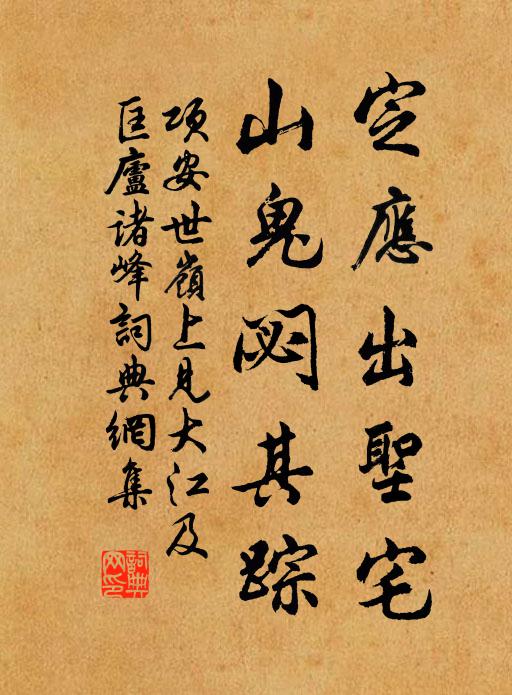 定應出聖宅
山鬼閟其踪
項安世嶺上見大江及
匡廬諸峰詞典網集
詞典
网印